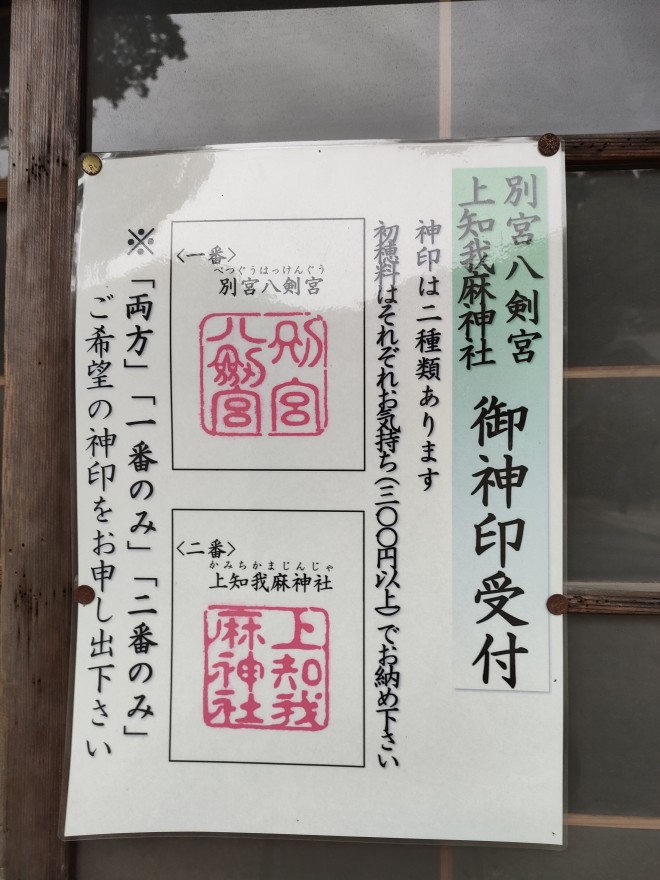 別宮八剣宮
上知我麻神社
御神印受付
神印は二種類あります
初穂料はそれぞれお気持ち(三〇〇円以上)でお納め下さい
〈一番〉
べつぐうはっけんぐう
別宮八剣宮
別宮
八剱宮
〈二番〉
かみちかまじんじゃ
上知我麻神社
上知我
麻神社
※「両方」「一番のみ」「二番のみ」
ご希望の神印をお申し出下さい